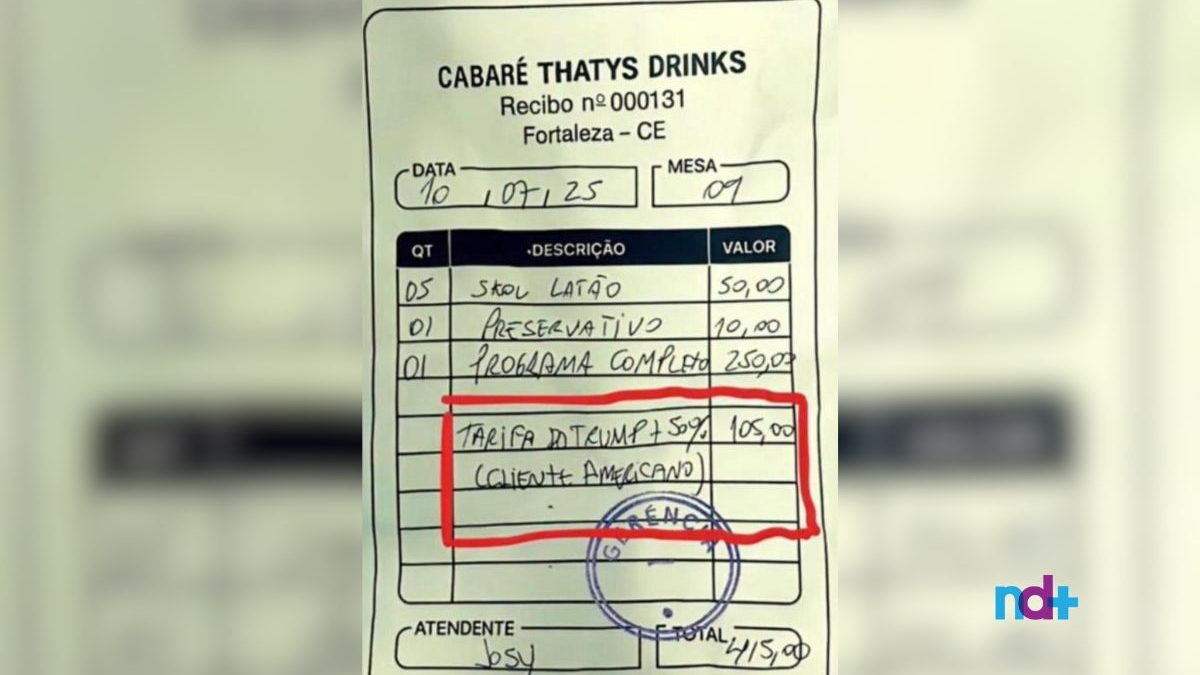 CABARÉ THATYS DRINKS
Recibo nº 000131
Fortaleza – CE
DATA 10 , 07 , 25 MESA 09
QT DESCRIÇÃO VALOR
05 SKOL LATÃO 50,00
01 PRESERVATIVO 10,00
01 PROGRAMA COMPLETO 250,00
TARIFA DO TRUMP + 50% 105,00
(CLIENTE AMERICANO)
GERÊNCIA
ATENDENTE Josy TOTAL 415,00
nd+